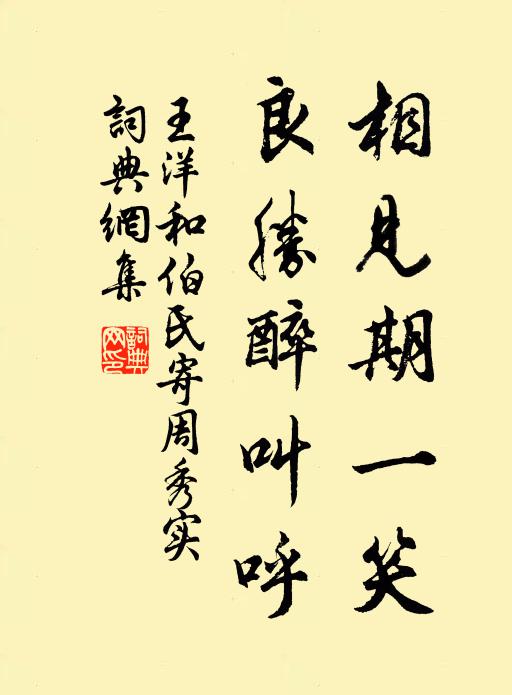 相見期一笑
良勝醉叫呼
王洋和伯氏寄周秀实
詞典網集
詞典网印